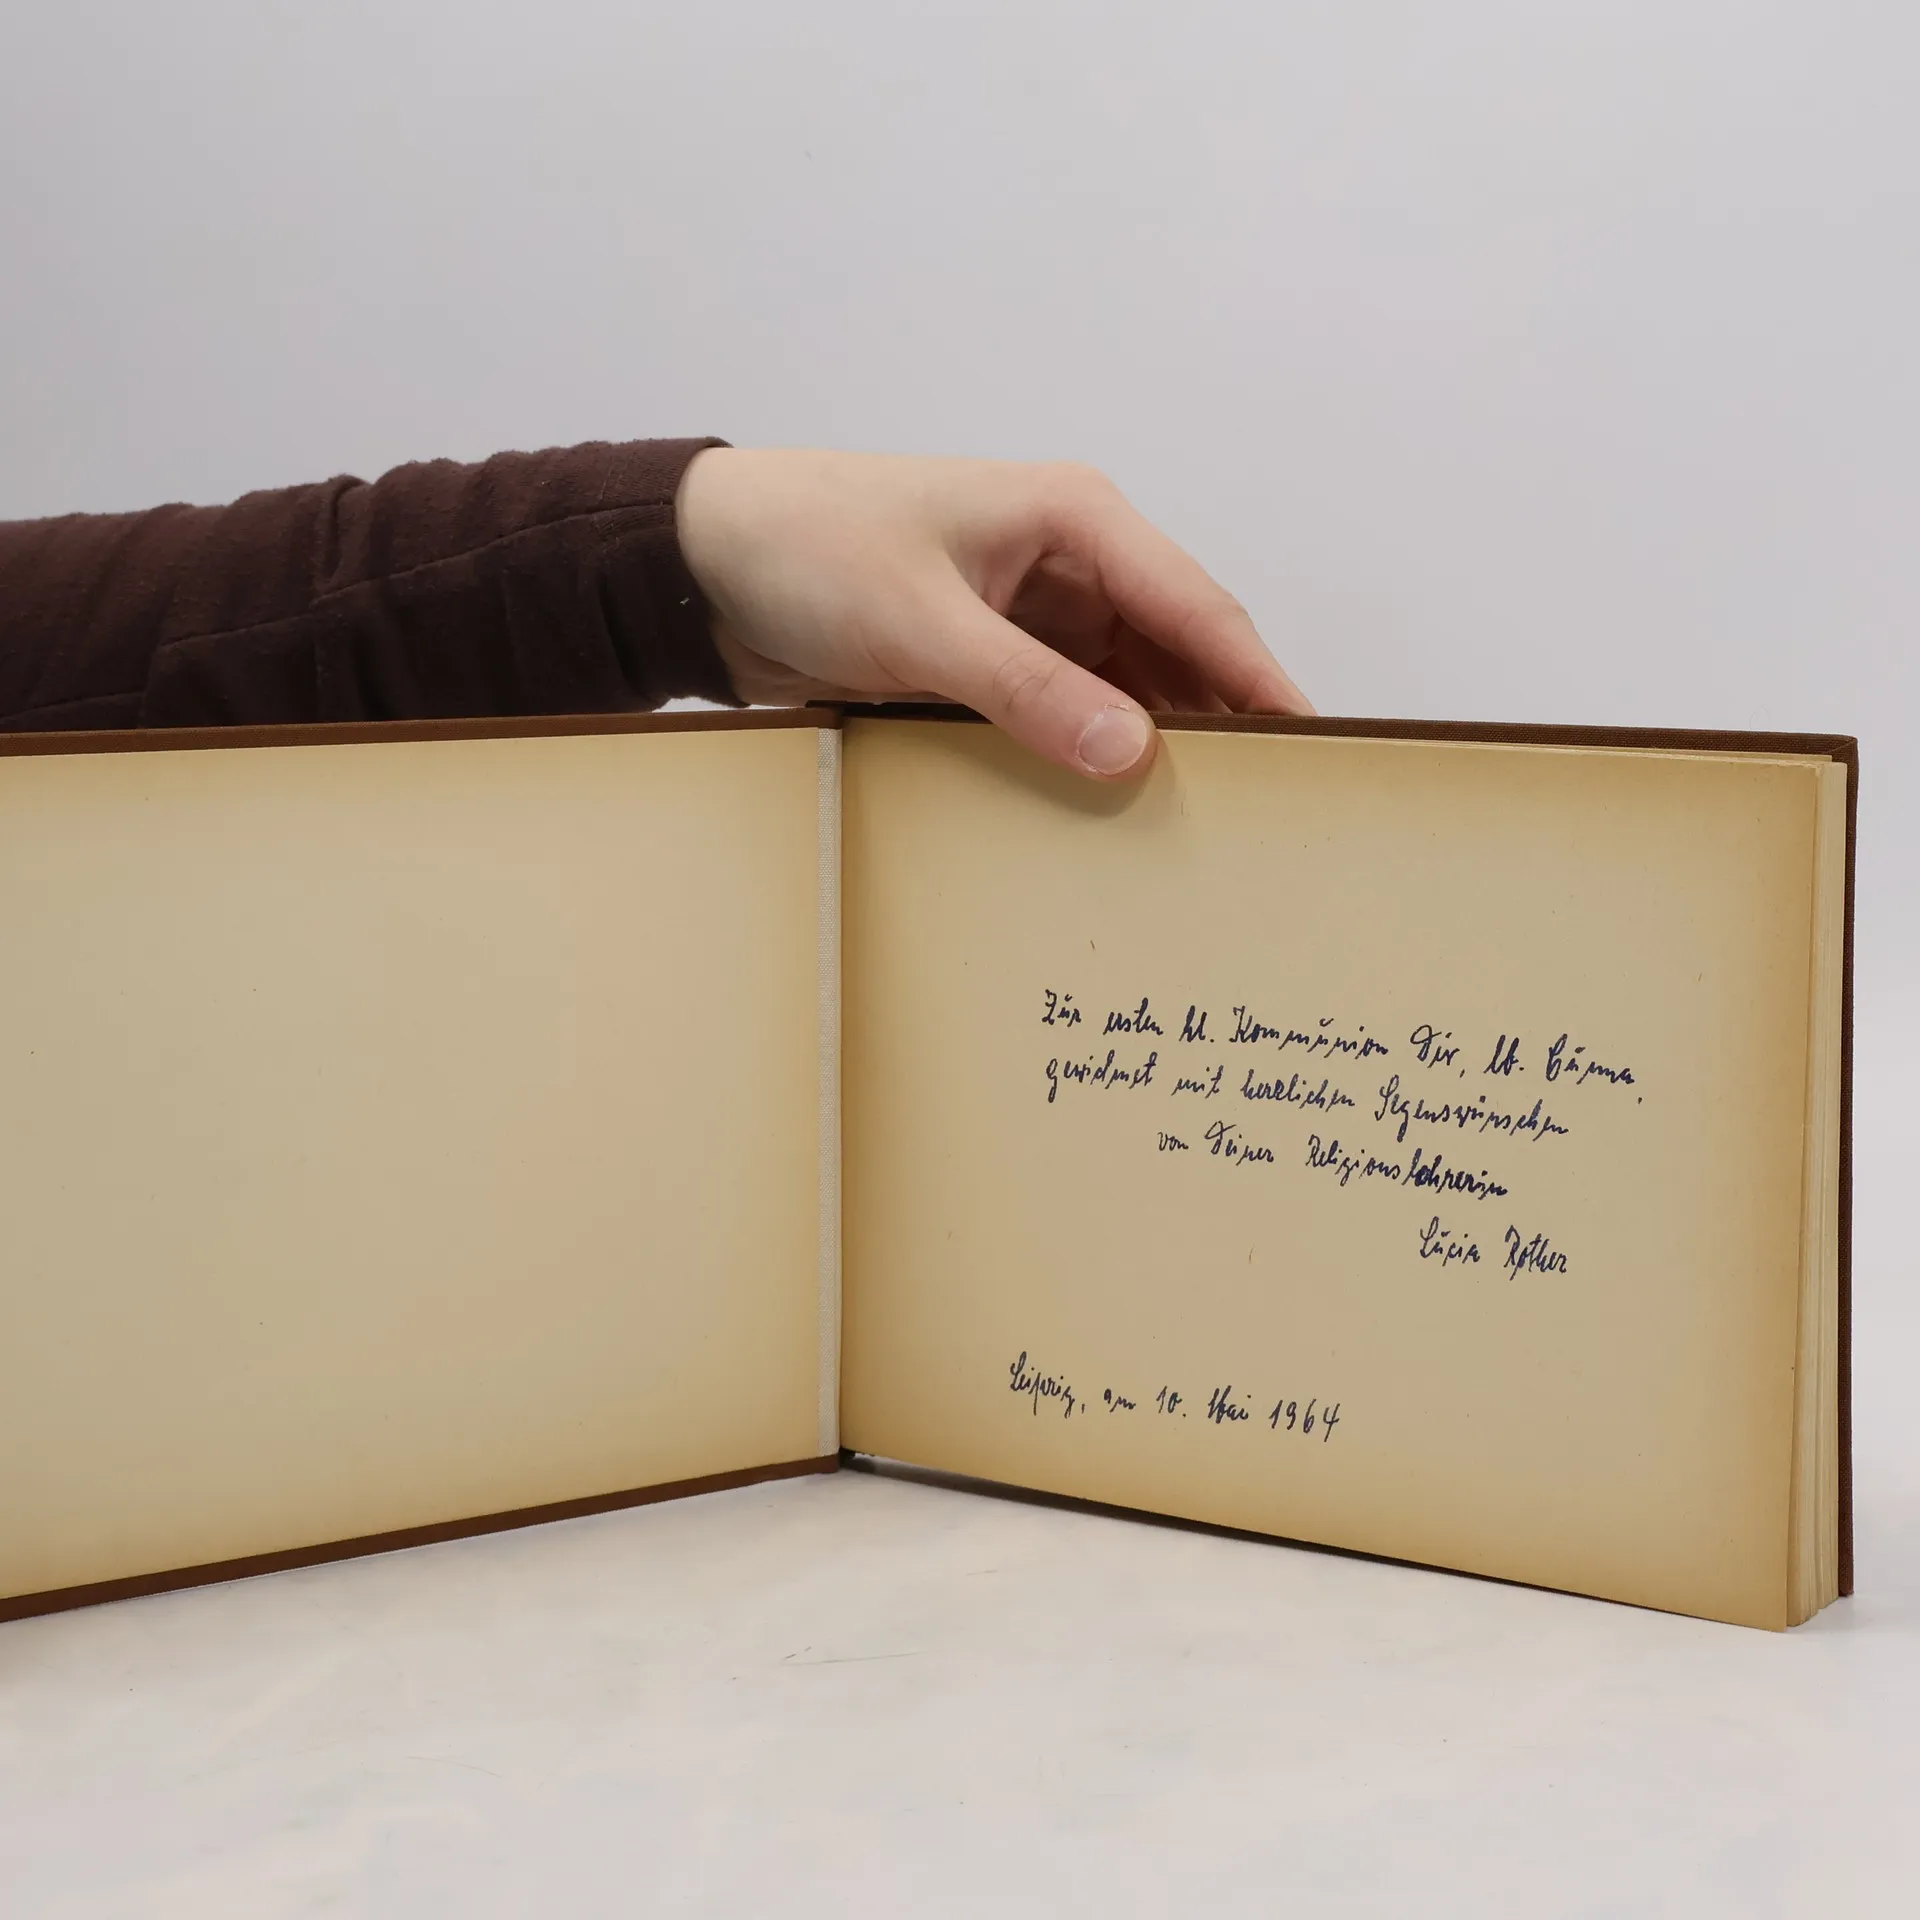 Zur ersten hl. Kommunion Dir, lb.
gewidmet mit herzlichen Segenswünschen
von Deiner Religionslehrerin
Lucia Rother
Leipzig, am 10. Mai 1964